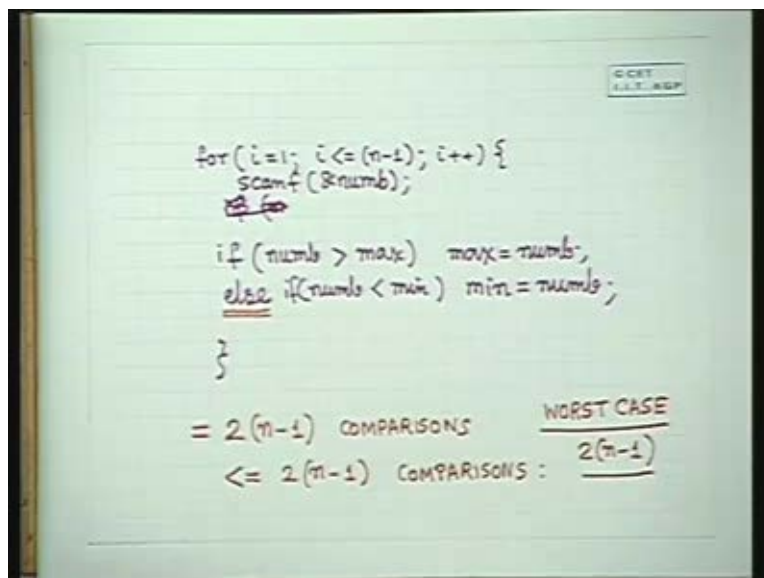 for(i=1; i<=(n-1); i++) {
scanf(&numb);
if (numb > max) max=numb;
else if(numb < min) min=numb;
}
= 2(n-1) COMPARISONS WORST CASE
<= 2(n-1) COMPARISONS: 2(n-1)